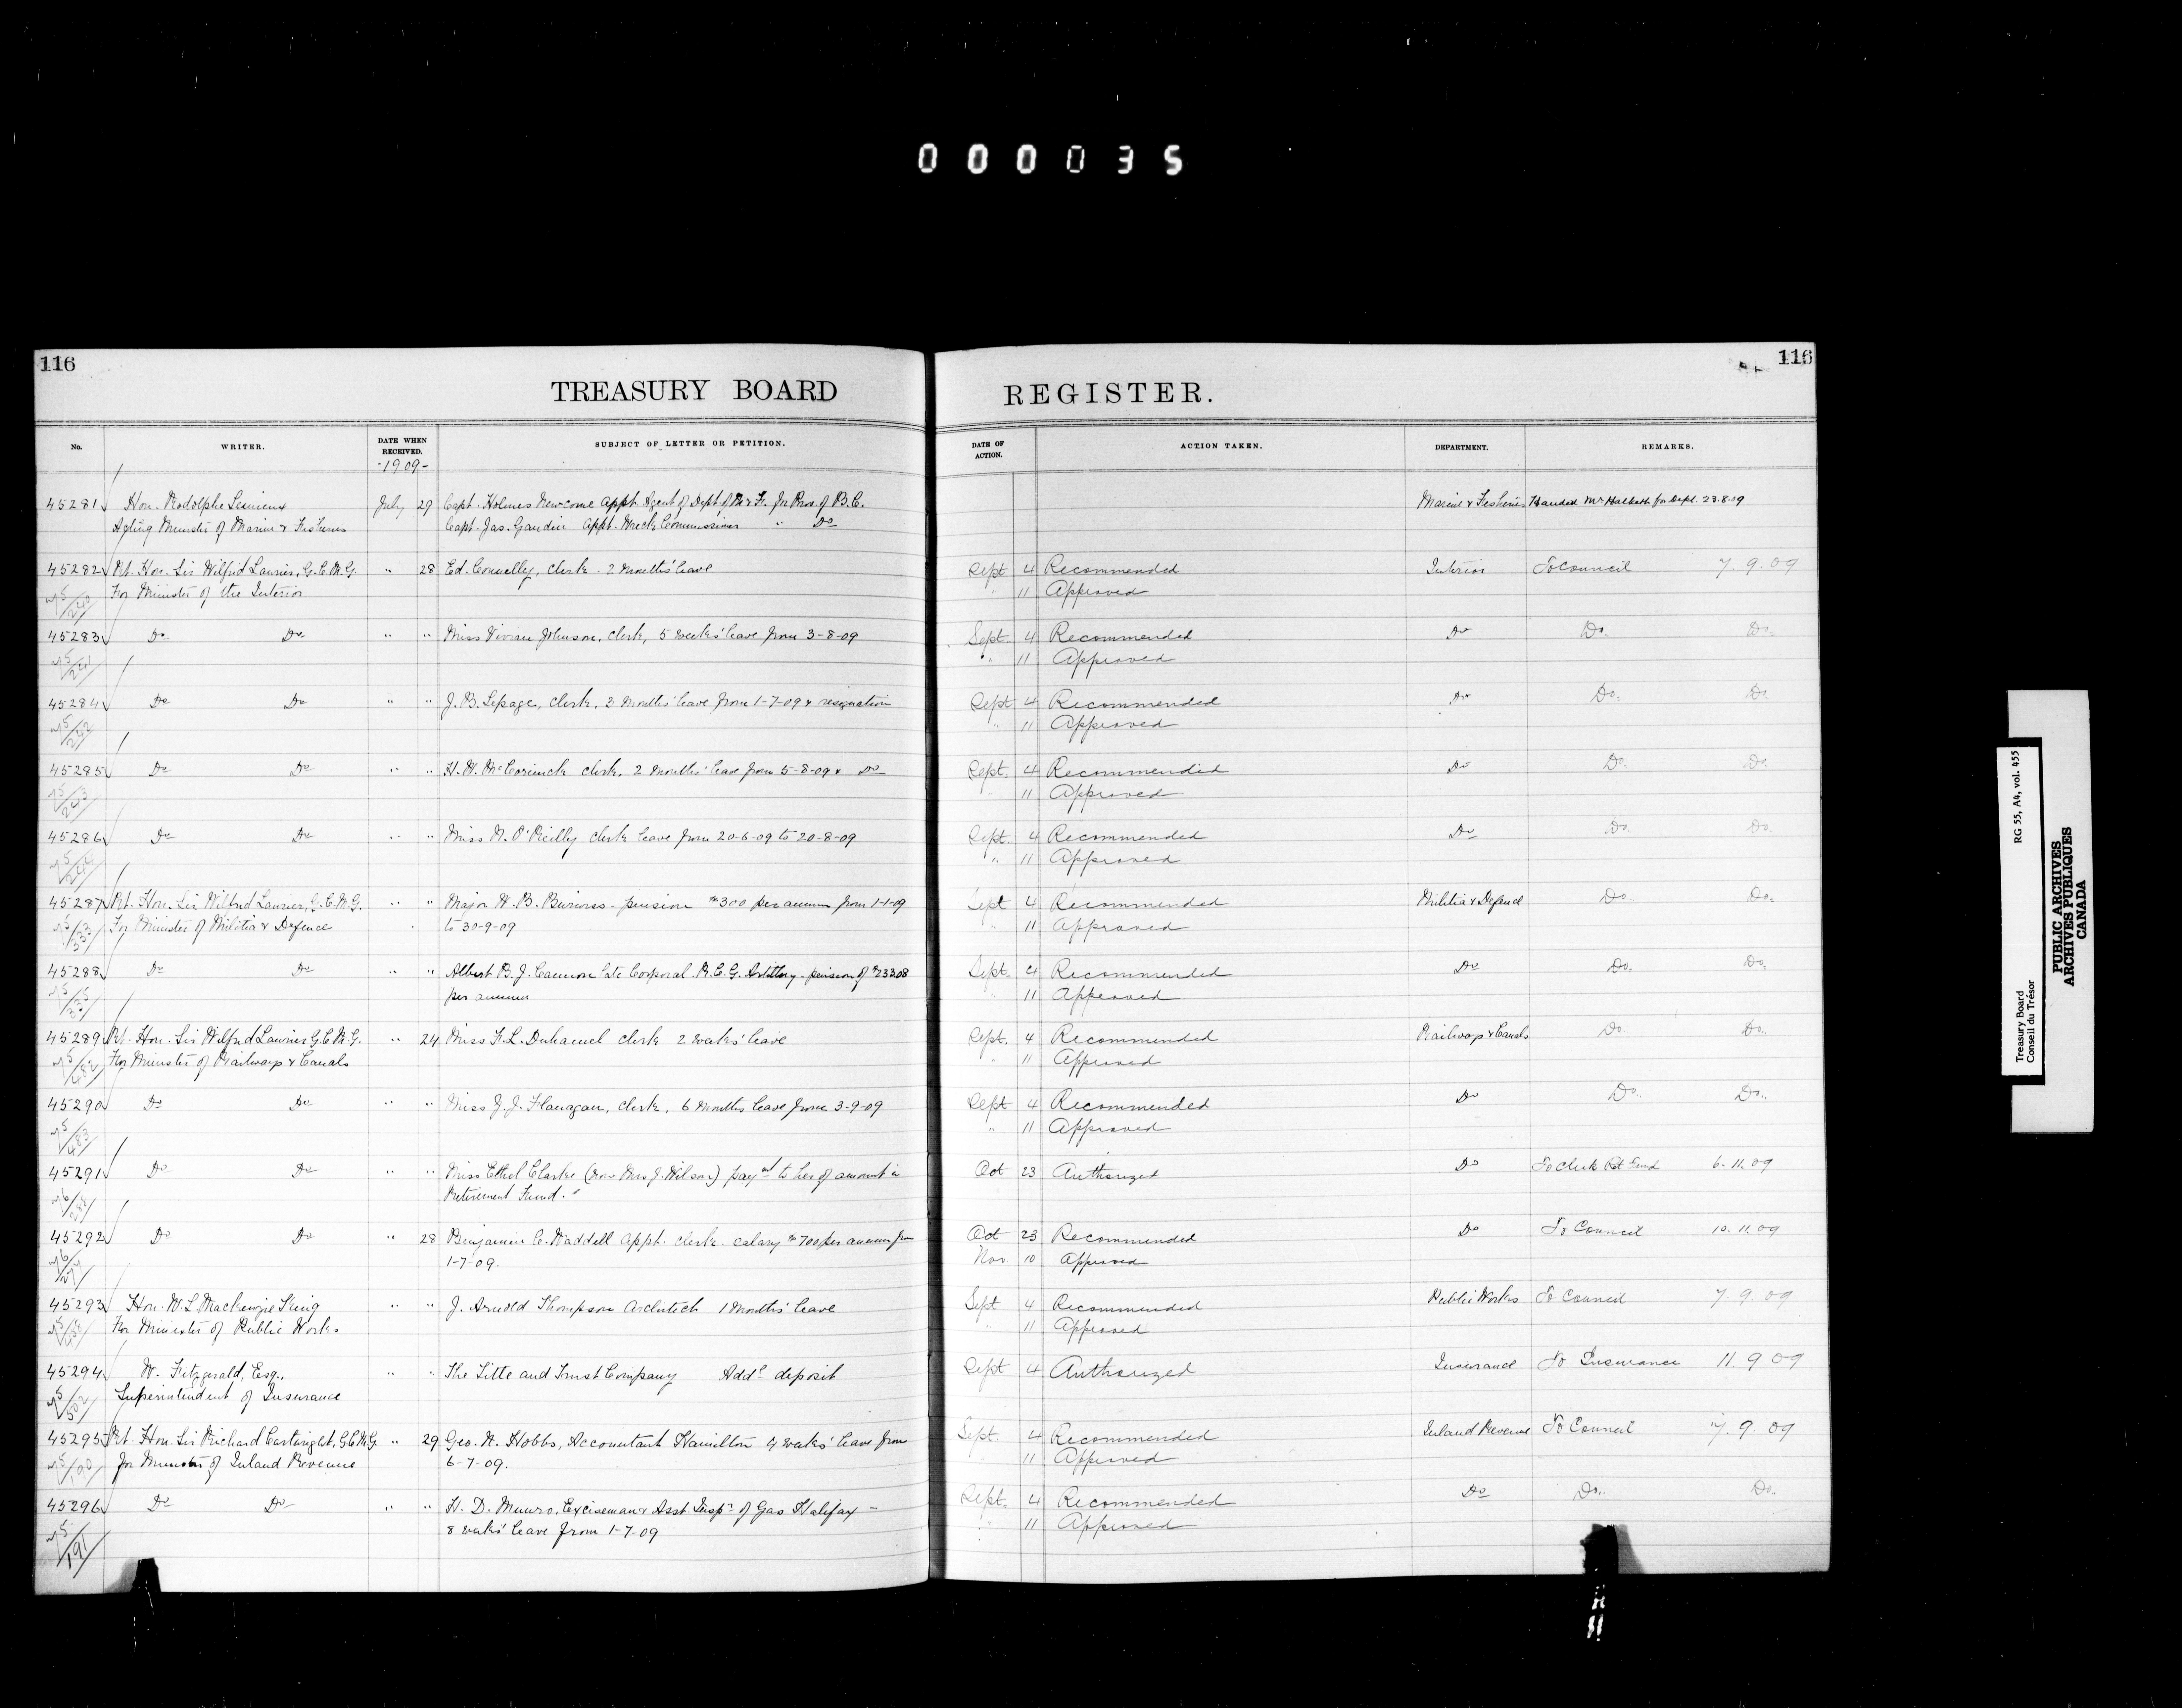 000035
116
116
TREASURY BOARD REGISTER.
No. WRITER. DATE WHEN RECEIVED. SUBJECT OF LETTER OR PETITION. DATE OF ACTION. ACTION TAKEN. DEPARTMENT. REMARKS.
-1909-
45281 Hon. Rodolphe Lemieux July 29 Capt. Holmes Newcome Appt. Agent of Dept. of M & F. for Prov. of B.C. Marine & Fisheries Handed Mr Halketh for Dept. 23.8.09
Acting Minister of Marine & Fisheries Capt. Jas. Gaudin Appt. Wreck Commissioner " Do
45282 Rt. Hon. Sir Wilfrid Laurier, G.C.M.G. " 28 Ed. Connelly, clerk - 2 Months' leave Sept 4 Recommended Interior To Council 7.9.09
For Minister of the Interior " 11 Approved
45283 Do Do " " Miss Vivian Johnson, clerk, 5 weeks' leave from 3-8-09 Sept. 4 Recommended Do Do. Do.
" 11 Approved
45284 Do Do " " J. B. Lepage, clerk, 3 Months' leave from 1-7-09 & resignation Sept 4 Recommended Do Do. Do
" 11 Approved
45285 Do Do " " H. W. McCormick clerk, 2 Months' leave from 5-8-09 & Do Sept. 4 Recommended Do Do. Do.
" 11 Approved
45286 Do Do " " Miss M. O'Reilly clerk leave from 20-6-09 to 20-8-09 Sept. 4 Recommended Do Do. Do.
" 11 Approved
45287 Rt. Hon. Sir Wilfrid Laurier, G.C.M.G. " " Major W. B. - pension $300 per annum from 1-1-09 Sept 4 Recommended Militia & Defence Do. Do.
For Minister of Militia & Defence to 30-9-09 " 11 Approved
45288 Do Do " " Albert B. J. Cannon late Corporal R.C.G. Artillery - pension of $233.08 Sept. 4 Recommended Do Do. Do.
per annum " 11 Approved
45289 Rt. Hon. Sir Wilfrid Laurier G.C.M.G. " 24 Miss F. L. Duhamel clerk 2 weeks' leave Sept. 4 Recommended Railways & Canals Do. Do.
For Minister of Railways & Canals " 11 Approved
45290 Do Do " " Miss J. J. Flanagan, clerk, 6 Months leave from 3-9-09 Sept 4 Recommended Do Do. Do.
" 11 Approved
45291 Do Do " " Miss Ethel Clarke (now Mrs J. Wilson) paymt to her of amount in Oct 23 Authorized Do To Clerk Ret Fund 6.11.09
Retirement Fund.
45292 Do Do " 28 Benjamin C. Waddell appt. clerk salary $700 per annum from Oct 23 Recommended Do To Council 10.11.09
1-7-09. Nov. 10 Approved
45293 Hon. W. L. Mackenzie King " " J. Arnold Thompson Architect 1 Months' leave Sept 4 Recommended Public Works To Council 7.9.09
For Minister of Public Works " 11 Approved
45294 W. Fitzgerald, Esq., " " The Title and Trust Company Addl deposit Sept 4 Authorized Insurance To Insurance 11.9.09
Superintendent of Insurance
45295 Rt. Hon. Sir Richard Cartwright, G.C.M.G. " 29 Geo. N. Hobbs, Accountant Hamilton 4 weeks' leave from Sept. 4 Recommended Inland Revenue To Council 7.9.09
for Minister of Inland Revenue 6-7-09. 11 Approved
45296 Do Do " " H. D. Munro, Exciseman & Asst. Inspr of Gas Halifax - Sept. 4 Recommended Do Do. Do.
8 weeks' leave from 1-7-09 " 11 Approved
Treasury Board RG 55, A4, vol. 455
Conseil du Trésor
PUBLIC ARCHIVES
ARCHIVES PUBLIQUES
CANADA